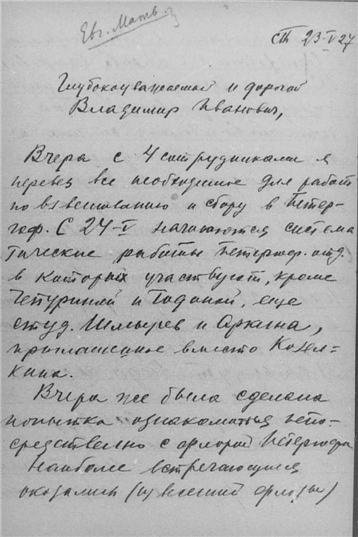 Евг. Матв.
23-V-27
Глубокоуважаемый и дорогой
Владимир Иванович,
Вчера с 4 сотрудниками я
перевез все необходимое для работ
по взвешиванию и сбору в Петер-
гоф. С 24-V начинаются система
тические работы Петергоф. отд.
в которых участвуют, кроме
и еще
студ. и
приглашенные вместо
Вчера же была сделана
попытка ознакомиться непо-
средственно с флорой Петергофа
Наиболее встречающимися
оказались (из весенней флоры)